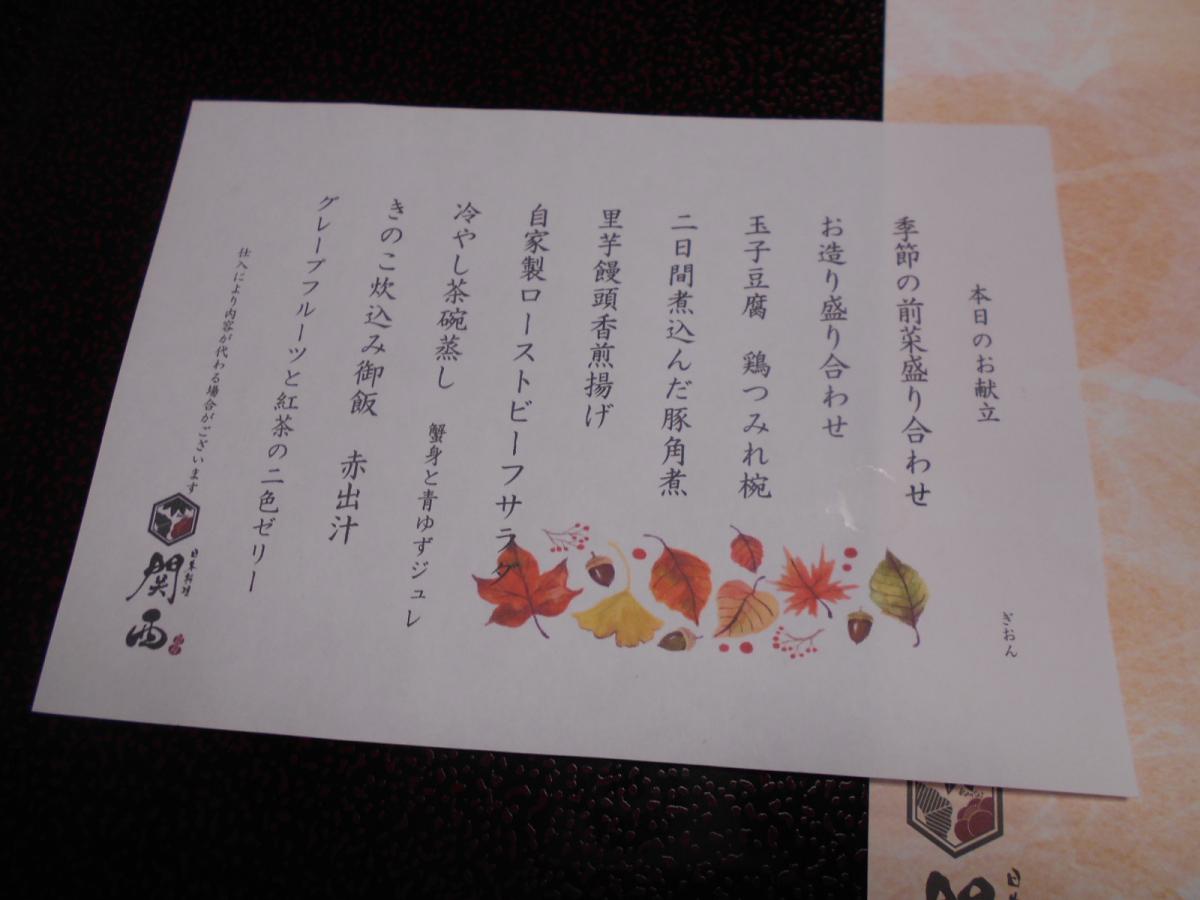 本日のお献立
ぎおん
季節の前菜盛り合わせ
お造り盛り合わせ
玉子豆腐　鶏つみれ椀
二日間煮込んだ豚角煮
里芋饅頭香煎揚げ
自家製ローストビーフサラダ
冷やし茶碗蒸し　蟹身と青ゆずジュレ
きのこ炊込み御飯　赤出汁
グレープフルーツと紅茶の二色ゼリー
仕入により内容が代わる場合がございます
日本料理
関西